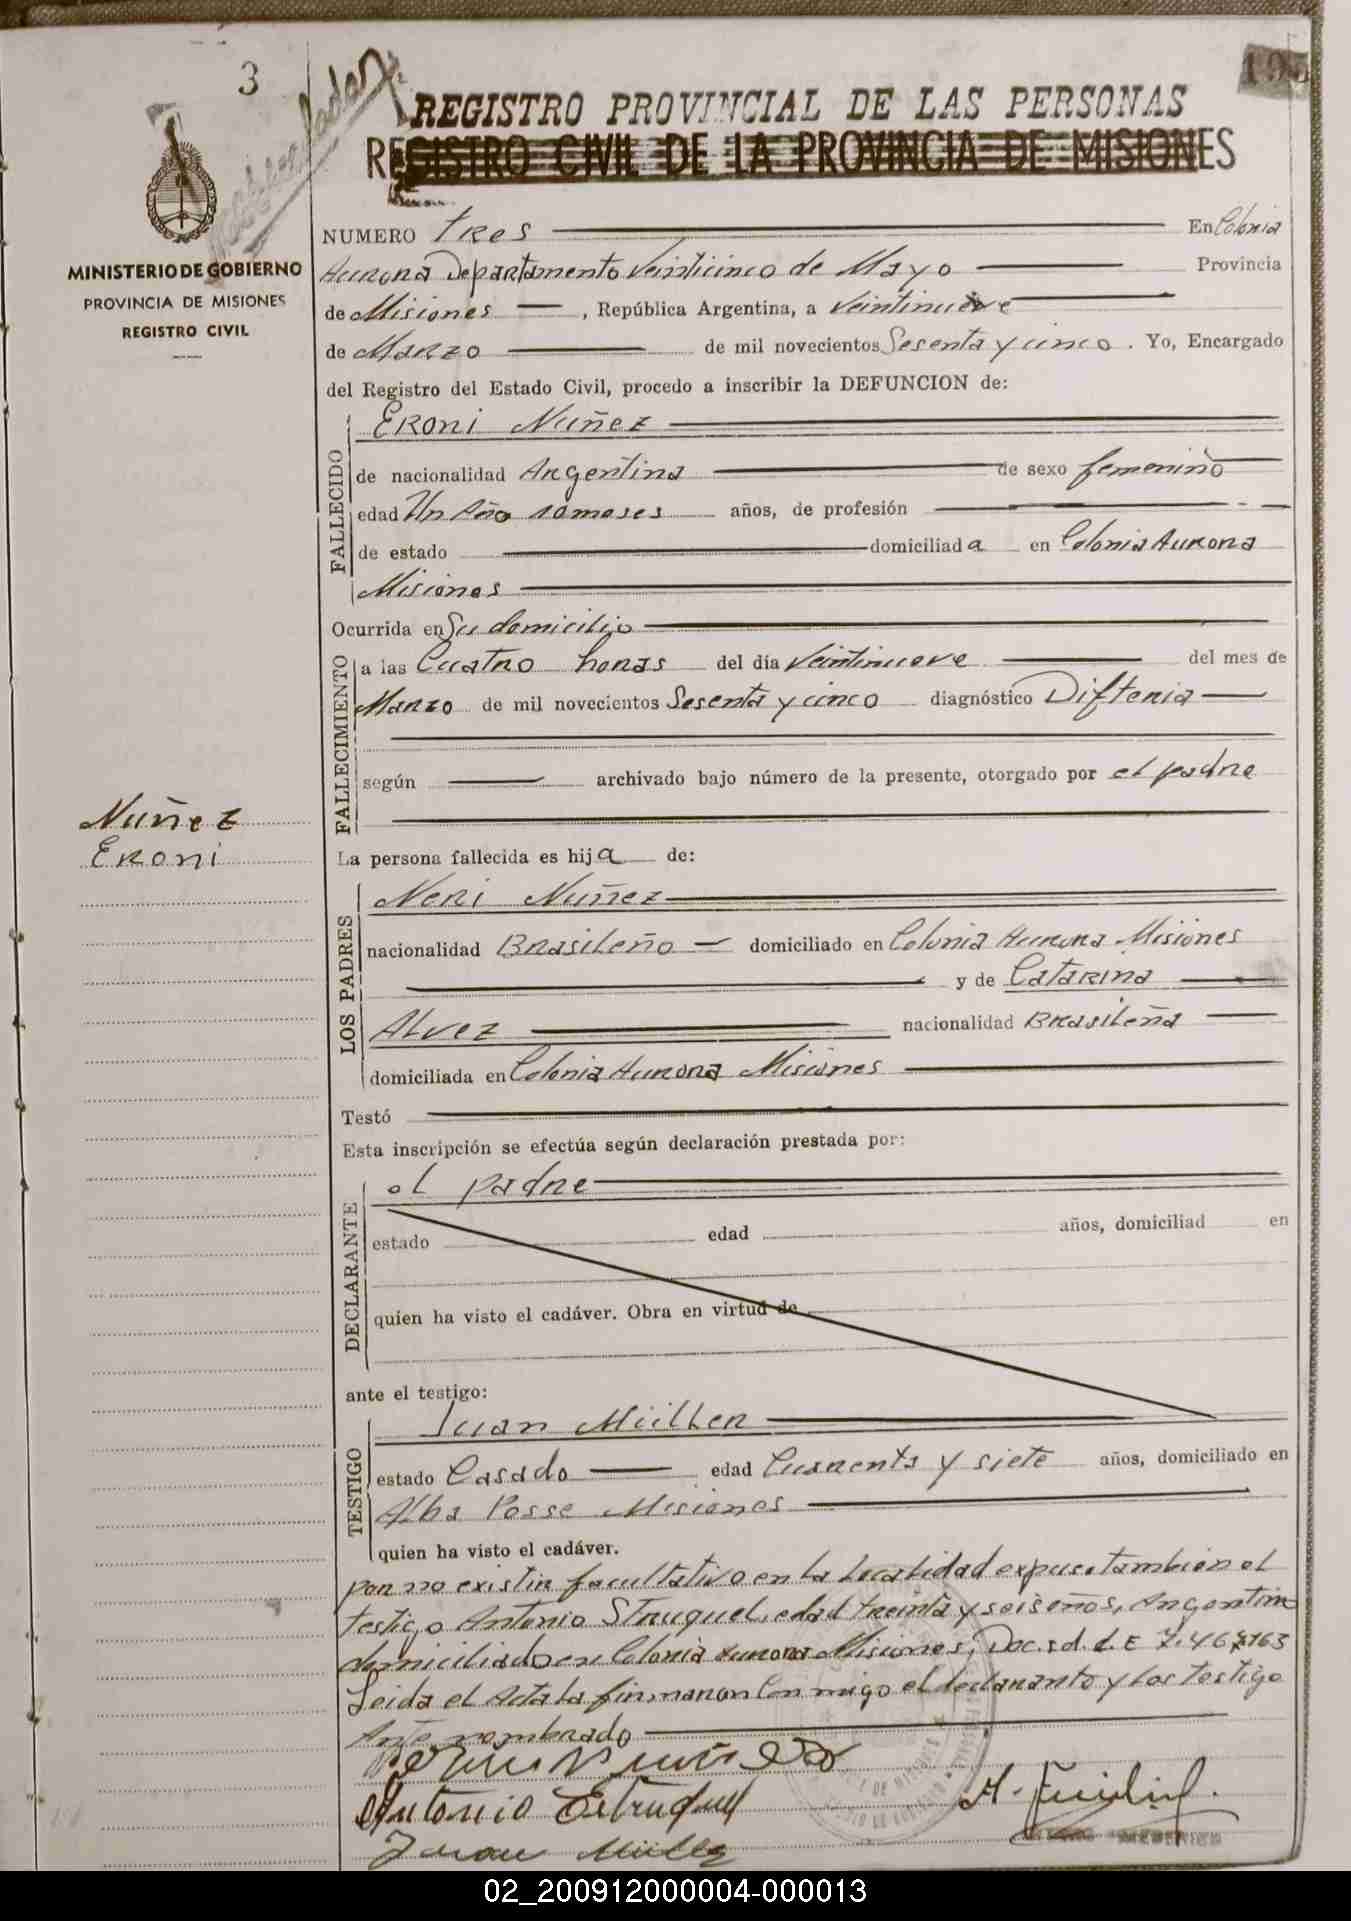 3
195
REGISTRO PROVINCIAL DE LAS PERSONAS
REGISTRO CIVIL DE LA PROVINCIA DE MISIONES
MINISTERIO DE GOBIERNO
PROVINCIA DE MISIONES
REGISTRO CIVIL
NUMERO tres En Colonia
Aurora Departamento Veinticinco de Mayo Provincia
de Misiones, República Argentina, a Veintinueve
de Marzo de mil novecientos Sesenta y cinco. Yo, Encargado
del Registro del Estado Civil, procedo a inscribir la DEFUNCION de:
FALLECIDO
Eroni Nuñez
de nacionalidad Argentina de sexo femenino
edad Un Año 10 meses años, de profesión
de estado domiciliada en Colonia Aurora
Misiones
Ocurrida en Su domicilio
FALLECIMIENTO
a las Cuatro horas del día Veintinueve del mes de
Marzo de mil novecientos Sesenta y cinco diagnóstico Difteria
según archivado bajo número de la presente, otorgado por el padre
Nuñez
Eroni
La persona fallecida es hija de:
LOS PADRES
Neri Nuñez
nacionalidad Brasileño domiciliado en Colonia Aurora Misiones
y de Catarina
Alvez nacionalidad Brasileña
domiciliada en Colonia Aurora Misiones
Testó
Esta inscripción se efectúa según declaración prestada por:
DECLARANTE
el padre
estado edad años, domiciliad en
quien ha visto el cadáver. Obra en virtud de
ante el testigo:
TESTIGO
Juan Müller
estado Casado edad Cuarenta y siete años, domiciliado en
Alba Posse Misiones
quien ha visto el cadáver.
por no existir facultativo en la localidad expuso también el
testigo Antonio Struquel, edad treinta y seis años, Argentino
domiciliado en Colonia Aurora Misiones,
Leida el Acta la firmaron Conmigo el declarante y los testigo
Ante nombrado
Antonio Estruquel
Juan Müller
02_200912000004-000013